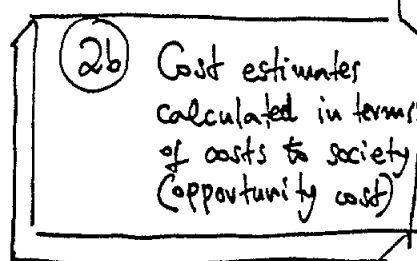 2b Cost estimates
calculated in terms
of costs to society
(opportunity cost)